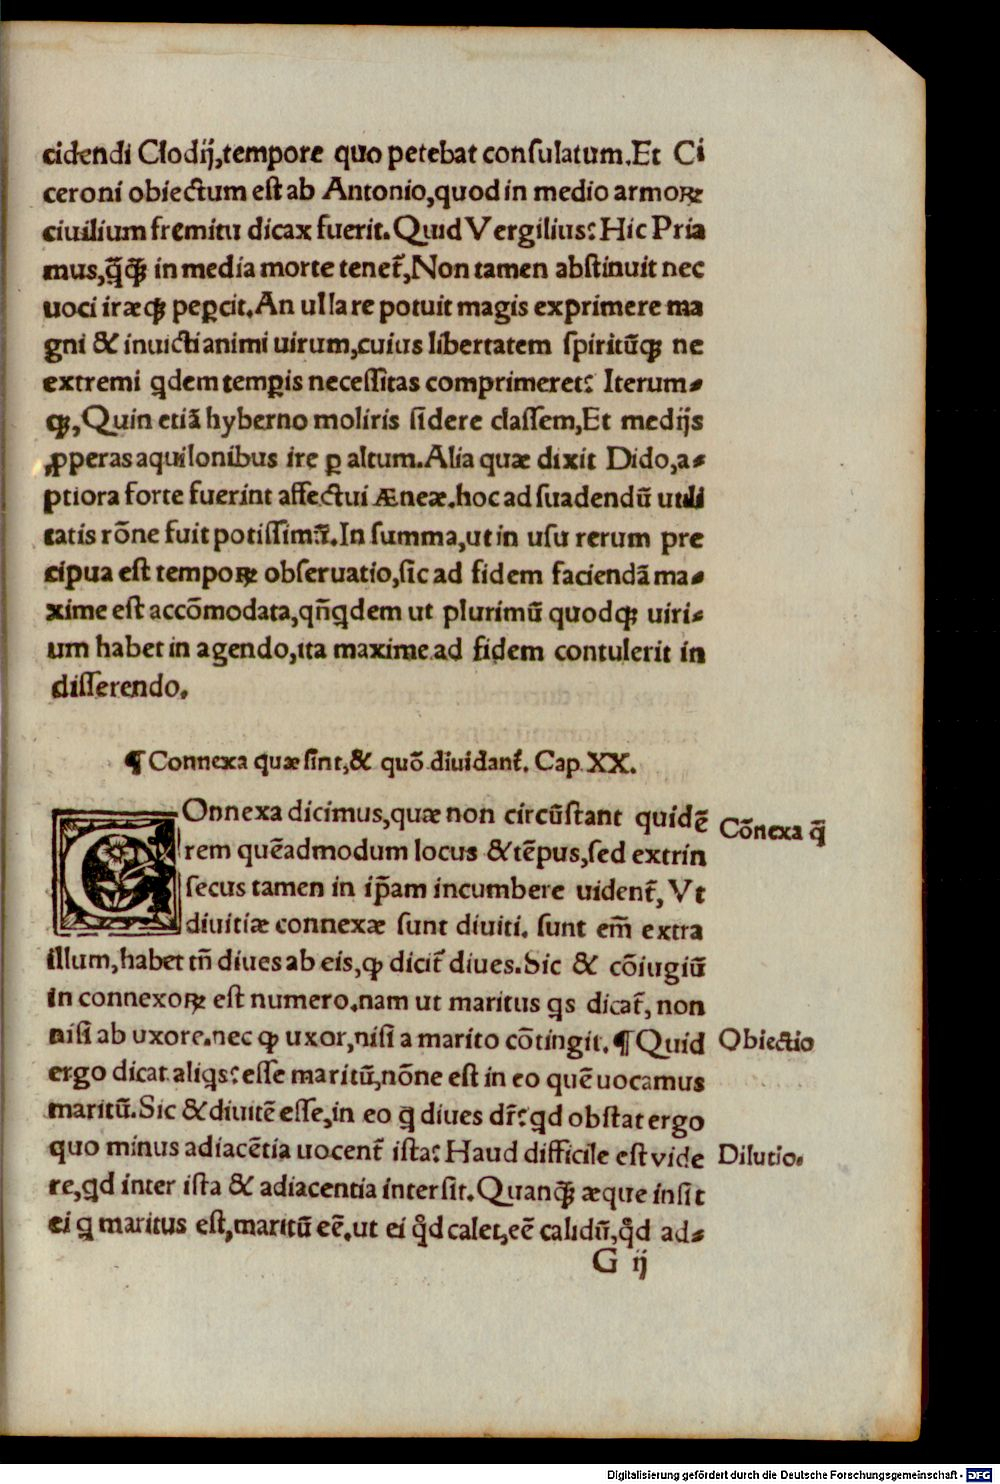 cidendi Clodij,tempore quo petebat consulatum.Et Ci
ceroni obiectum est ab Antonio,quod in medio armoꝝ
ciuilium fremitu dicax fuerit.Quid Vergilius: Hic Pria
mus,q̄q̄ꝫ in media morte teneť,Non tamen abstinuit nec
uoci iræqꝫ peꝑcit.An ulla re potuit magis exprimere ma
gni & inuicti animi uirum,cuius libertatem spiritūqꝫ ne
extremi ꝗdem temꝑis necessitas comprimeret: Iterum⸗
qꝫ,Quin etiā hyberno moliris sidere classem,Et medijs
ꝓperas aquilonibus ire ꝑ altum.Alia quæ dixit Dido,a⸗
ptiora forte fuerint affectui Æneæ.hoc ad suadendū utili
tatis rōne fuit potissimū.In summa,ut in usu rerum pre
cipua est tempoꝝ obseruatio,sic ad fidem faciendā ma⸗
xime est accōmodata,qn̄ꝗdem ut plurimū quodqꝫ uiri⸗
um habet in agendo,ita maxime ad fidem contulerit in
disserendo.
¶ Connexa quæ sint,& quō diuidanť. Cap XX.
COnnexa dicimus,quæ non circūstant quidē
rem quēadmodum locus & tēpus,sed extrin
secus tamen in ip̄am incumbere uidenť, Vt
diuitiæ connexæ sunt diuiti. sunt em̄ extra
illum,habet tn̄ diues ab eis,ꝙ diciť diues.Sic & cōiugiū
in connexoꝝ est numero.nam ut maritus ꝗs dicať, non
nisi ab uxore.nec ꝙ uxor,nisi a marito cōtingit.¶ Quid
ergo dicat aliꝗs: esse maritū,nōne est in eo quē uocamus
maritū.Sic & diuitē esse,in eo ꝗ diues dr̄: ꝗd obstat ergo
quo minus adiacētia uocenť ista: Haud difficile est vide
re,ꝗd inter ista & adiacentia intersit.Quanq̄ꝫ æque insit
ei ꝗ maritus est,maritū eē.ut ei qͦd calet,eē calidū,qͦd ad⸗
G ij
Cōnexa q̄
Obiectio
Dilutio.
Digitalisierung gefördert durch die Deutsche Forschungsgemeinschaft - DFG